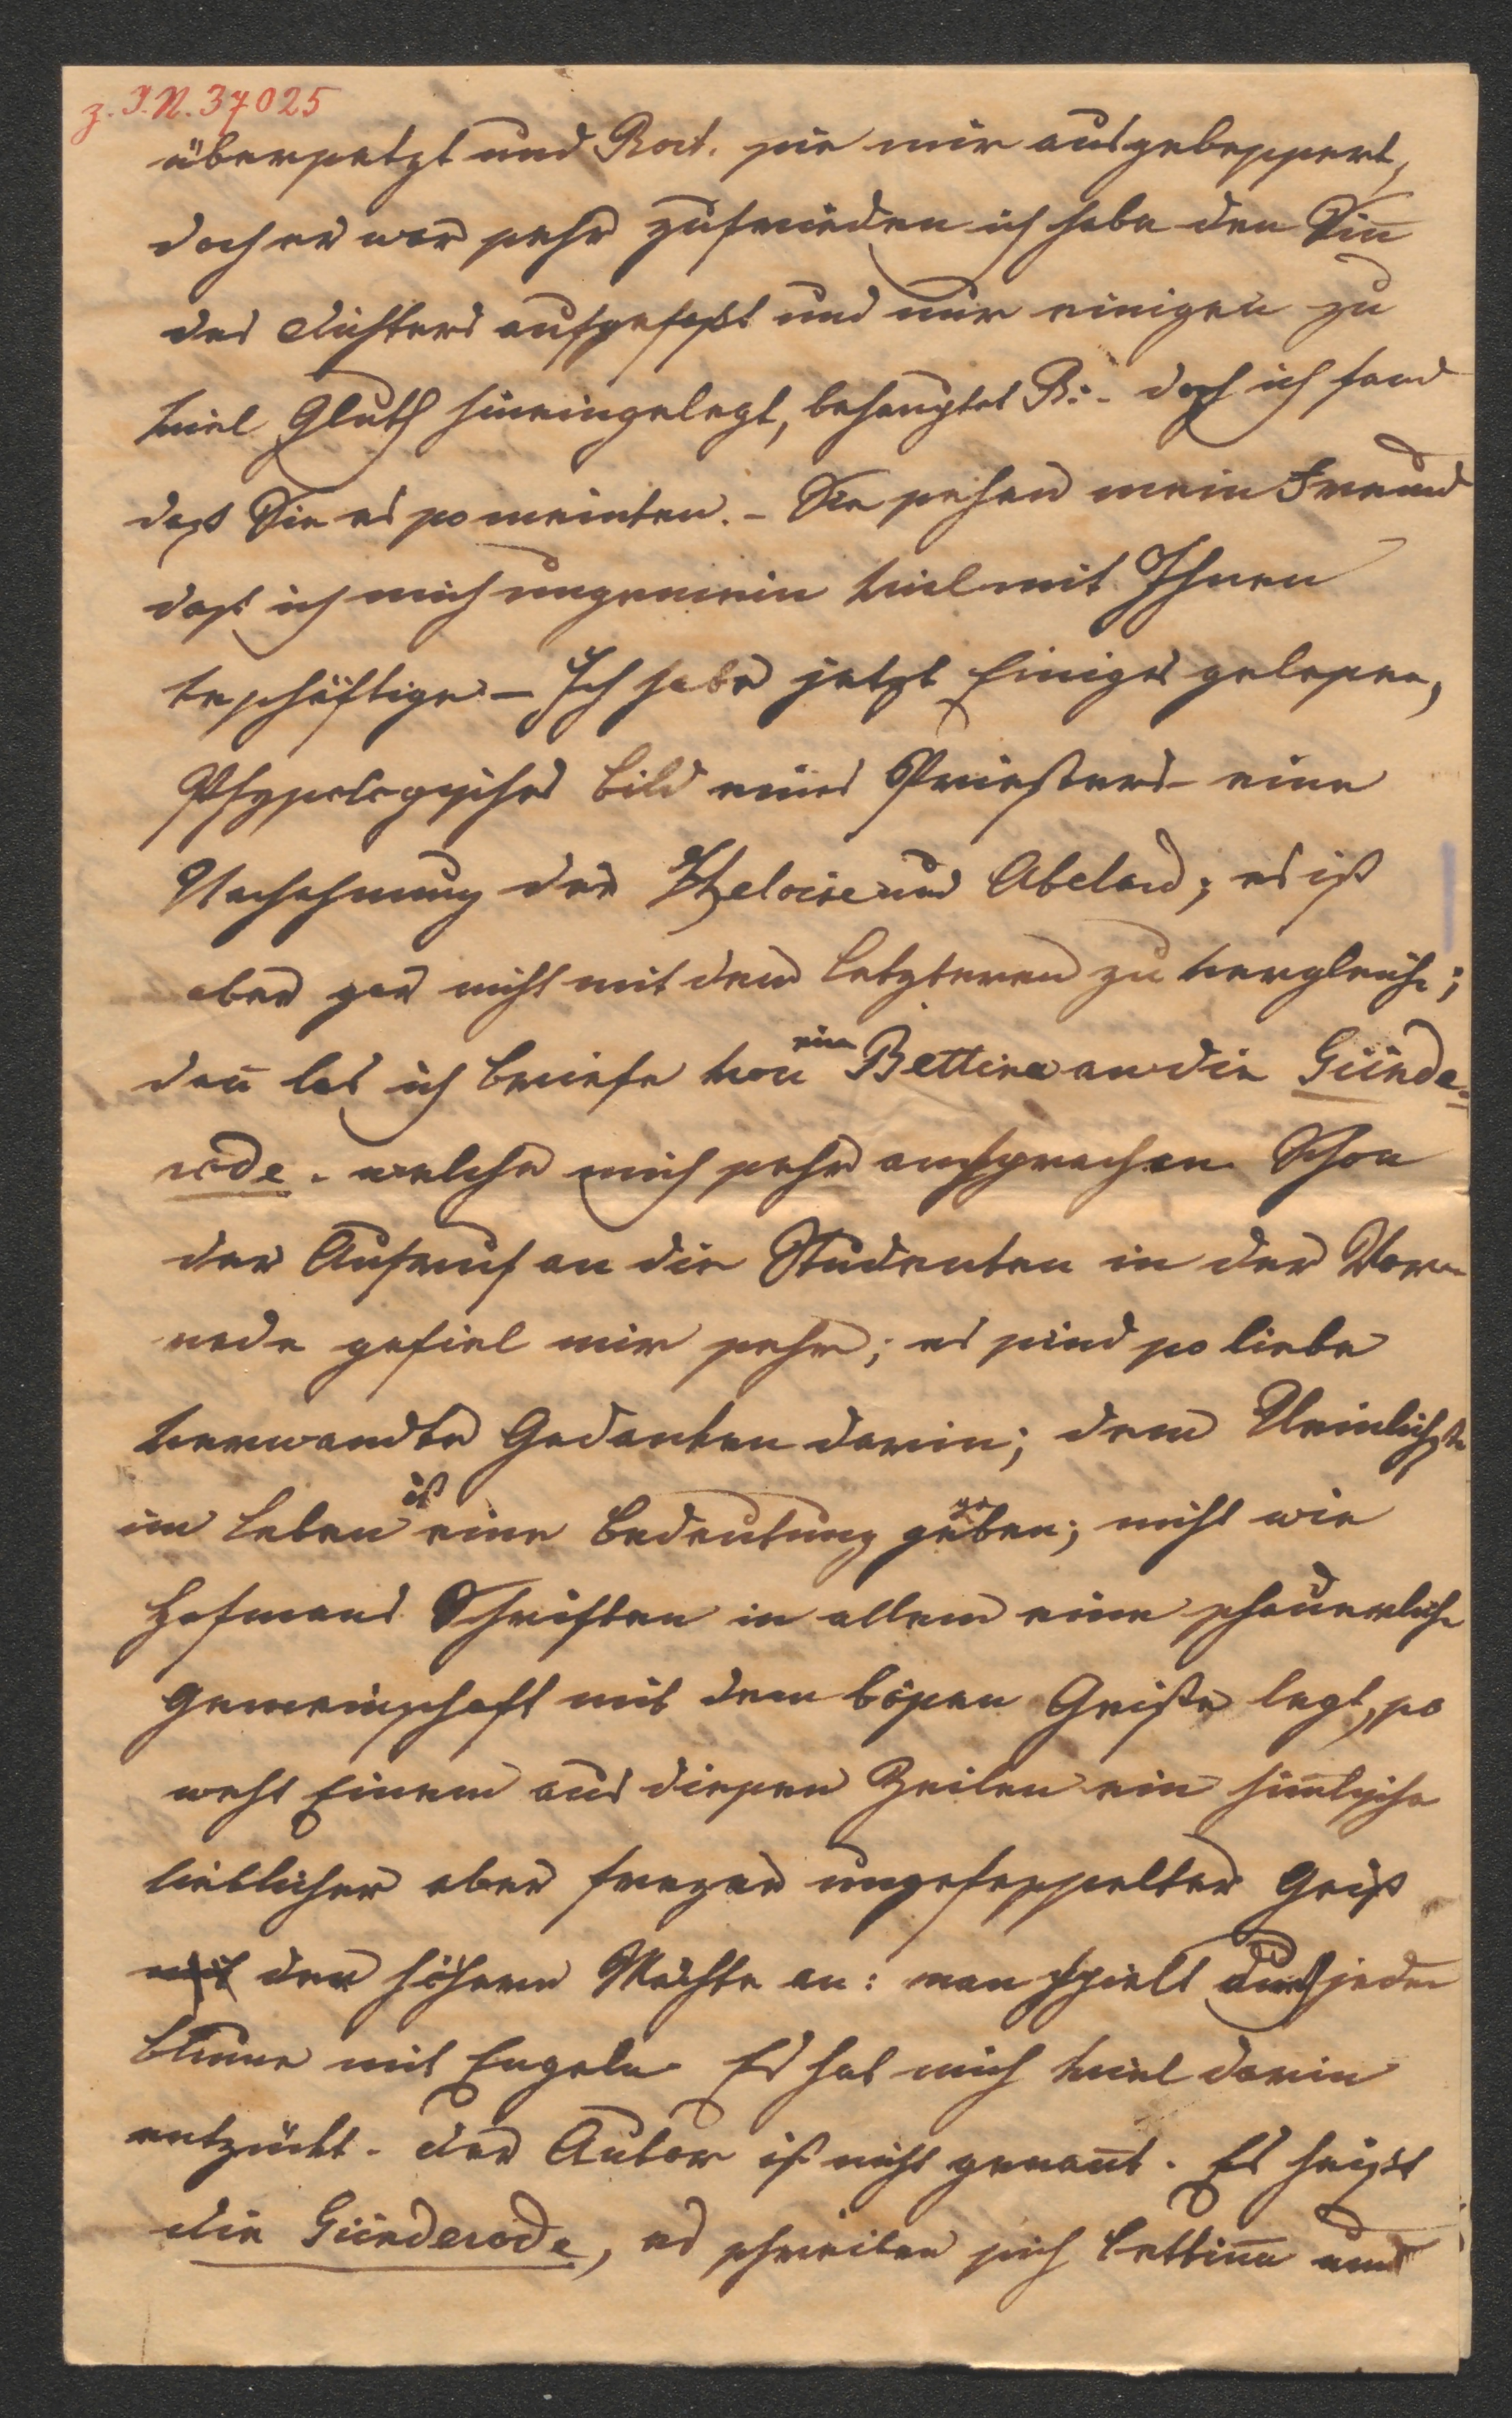 z. I.N. 37025
übersetzt und Rod. sie mir ausgebessert,
doch er war sehr zufrieden ich habe den Sin̄
des Dichters aufgefaßt und nur einigen zu
viel Gluth hineingelegt, behauptet R: - doch ich fand
daß Sie es so meinten. - Sie sehen mein Freund
daß ich mich ungemein viel mit Ihnen
beschäftige - Ich habe jetzt Einiges gelesen,
Physologisches Bild eines Priesters - eine
Nachahmung der Heloise und Abelard; es ist
aber gar nicht mit dem Letzteren zu vergleich;
dan̄ las ich Briefe von einer Bettina an die Günde-
rode. welche mich sehr ansprachen. Schon
der Aufruf an die Studenten in der Vor-
rede gefiel mir sehr; es sind so liebe
verwandte Gedanken darin; dem Kleinlichste
im Leben ist eine Bedeutung gegeben; nicht wie
Hofmans Schriften in allem eine schauerliche
Gemeinschaft mit dem bösen Geiste legt, so
weht Einem aus diesen Zeilen ein him̄lische
lieblicher aber freyer ungefesselter Geist
mit der höhern Mächte an: man spielt durch jeden
Blume mit Engeln. Es hat mich viel darin
entzückt. Der Autor ist nicht genan̄t. Es heißt
die Günderode, es schreiben sich Bettina und